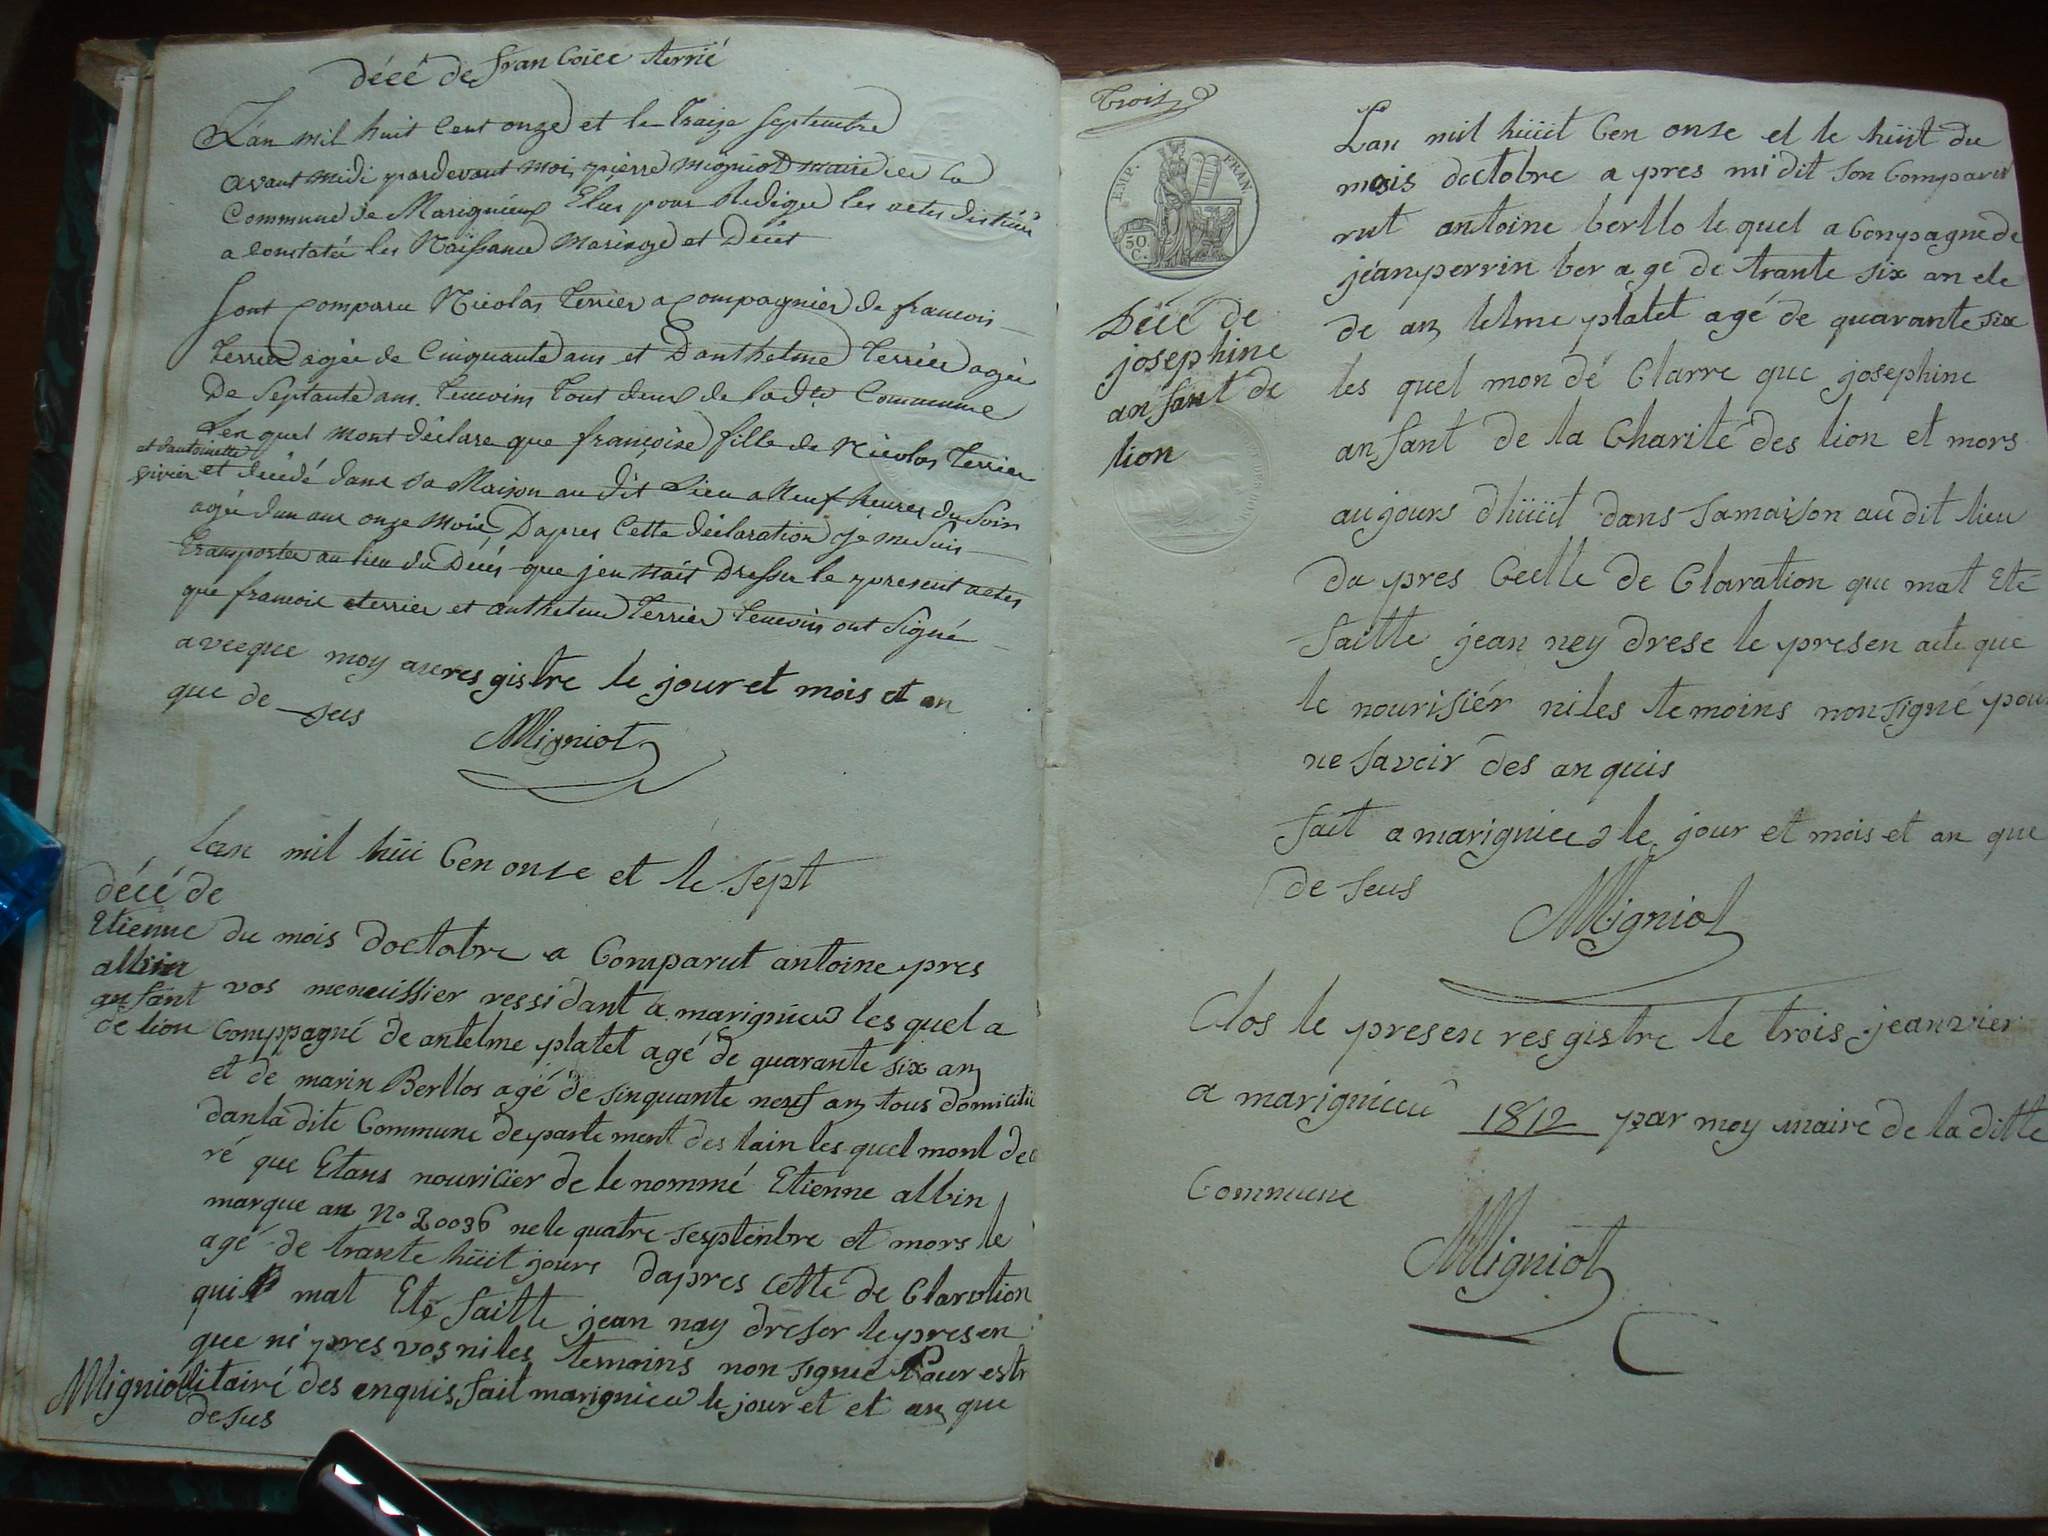 décé de francoice terrié
L'an mil huit cent onze et le traize septembre
avant midi pardevant moi pierre migniot maire de la
Commune de Marignieux Elus pour Rediger les actes distiné
a constatée les Naissance Mariage et Décet
Sont comparu Nicolas Terrier acompagnier de francois
Terrier agée de Cinquante ans et Danthelme Terrier agée
De Septante ans. temoins tous deux de la dte Commune
Lesquel mont déclare que françoise fille de Nicolas Terrier
et dantoinette
vivier et décédé dans sa Maison au dit Lieu a Neuf heures du Soir
agée dun ans onze Mois, Dapres Cette déclaration je me suis
transporter au lieu du Décés que jeu nait Dresser le present actes
que francoic terrier et anthelme Terrier temoin ont signé
avecque moy au resgistre le jour et mois et an
que de sus
Migniot
Lan mil hüi Cen onze et le sept
décé de
Etienne
albin
anfant
de lion
du mois doctobre a Comparut antoine pres
vos menuissier ressidant a marignieu les quel a
Comppagné de antelme platet agé de quarante six an
et de marin Berllos agé de sinquante neuf an tous domicilié
danla dite Commune departement des lain les quel mont dec
ré que Etans nouricier de le nommé Etienne albin
marque au No 20036 ne le quatre septenbre et mors le
agé de trante hüit jours dapres cette de Claration
qui mat Eté faitte jean nay dreser le presen
que ni pres vos ni les temoins non signie Pour estr
litairé des enquis fait marignieu le jour et et an que
de sus
Migniot
Trois
EMP. FRAN.
50 C.
Décé de
josephine
anfant de
lion
Lan mil hüüit Cen onze et le hüit du
mois doctobre apres midit son Comparu
rut antoine berllo le quel a Conpagne de
jean perrin ber age de trante six an et de
de an telme platet agé de quarante six
les quel mon dé Clarre que josephine
anfant de la Charité des lion et mors
aujours dhüüit dans samaison audit lieu
da pres Ceelle de Claration que mat Eté
faitte jean ney drese le presen acte que
le nourisiér ni les temoins non signé pour
ne savoir des anquis
fait a marignieu le jour et mois et an que
de seus
Migniot
Clos le presen resgistre le trois jeanvier
a marignieu 1812 par moy maire de la ditte
Commune
Migniot